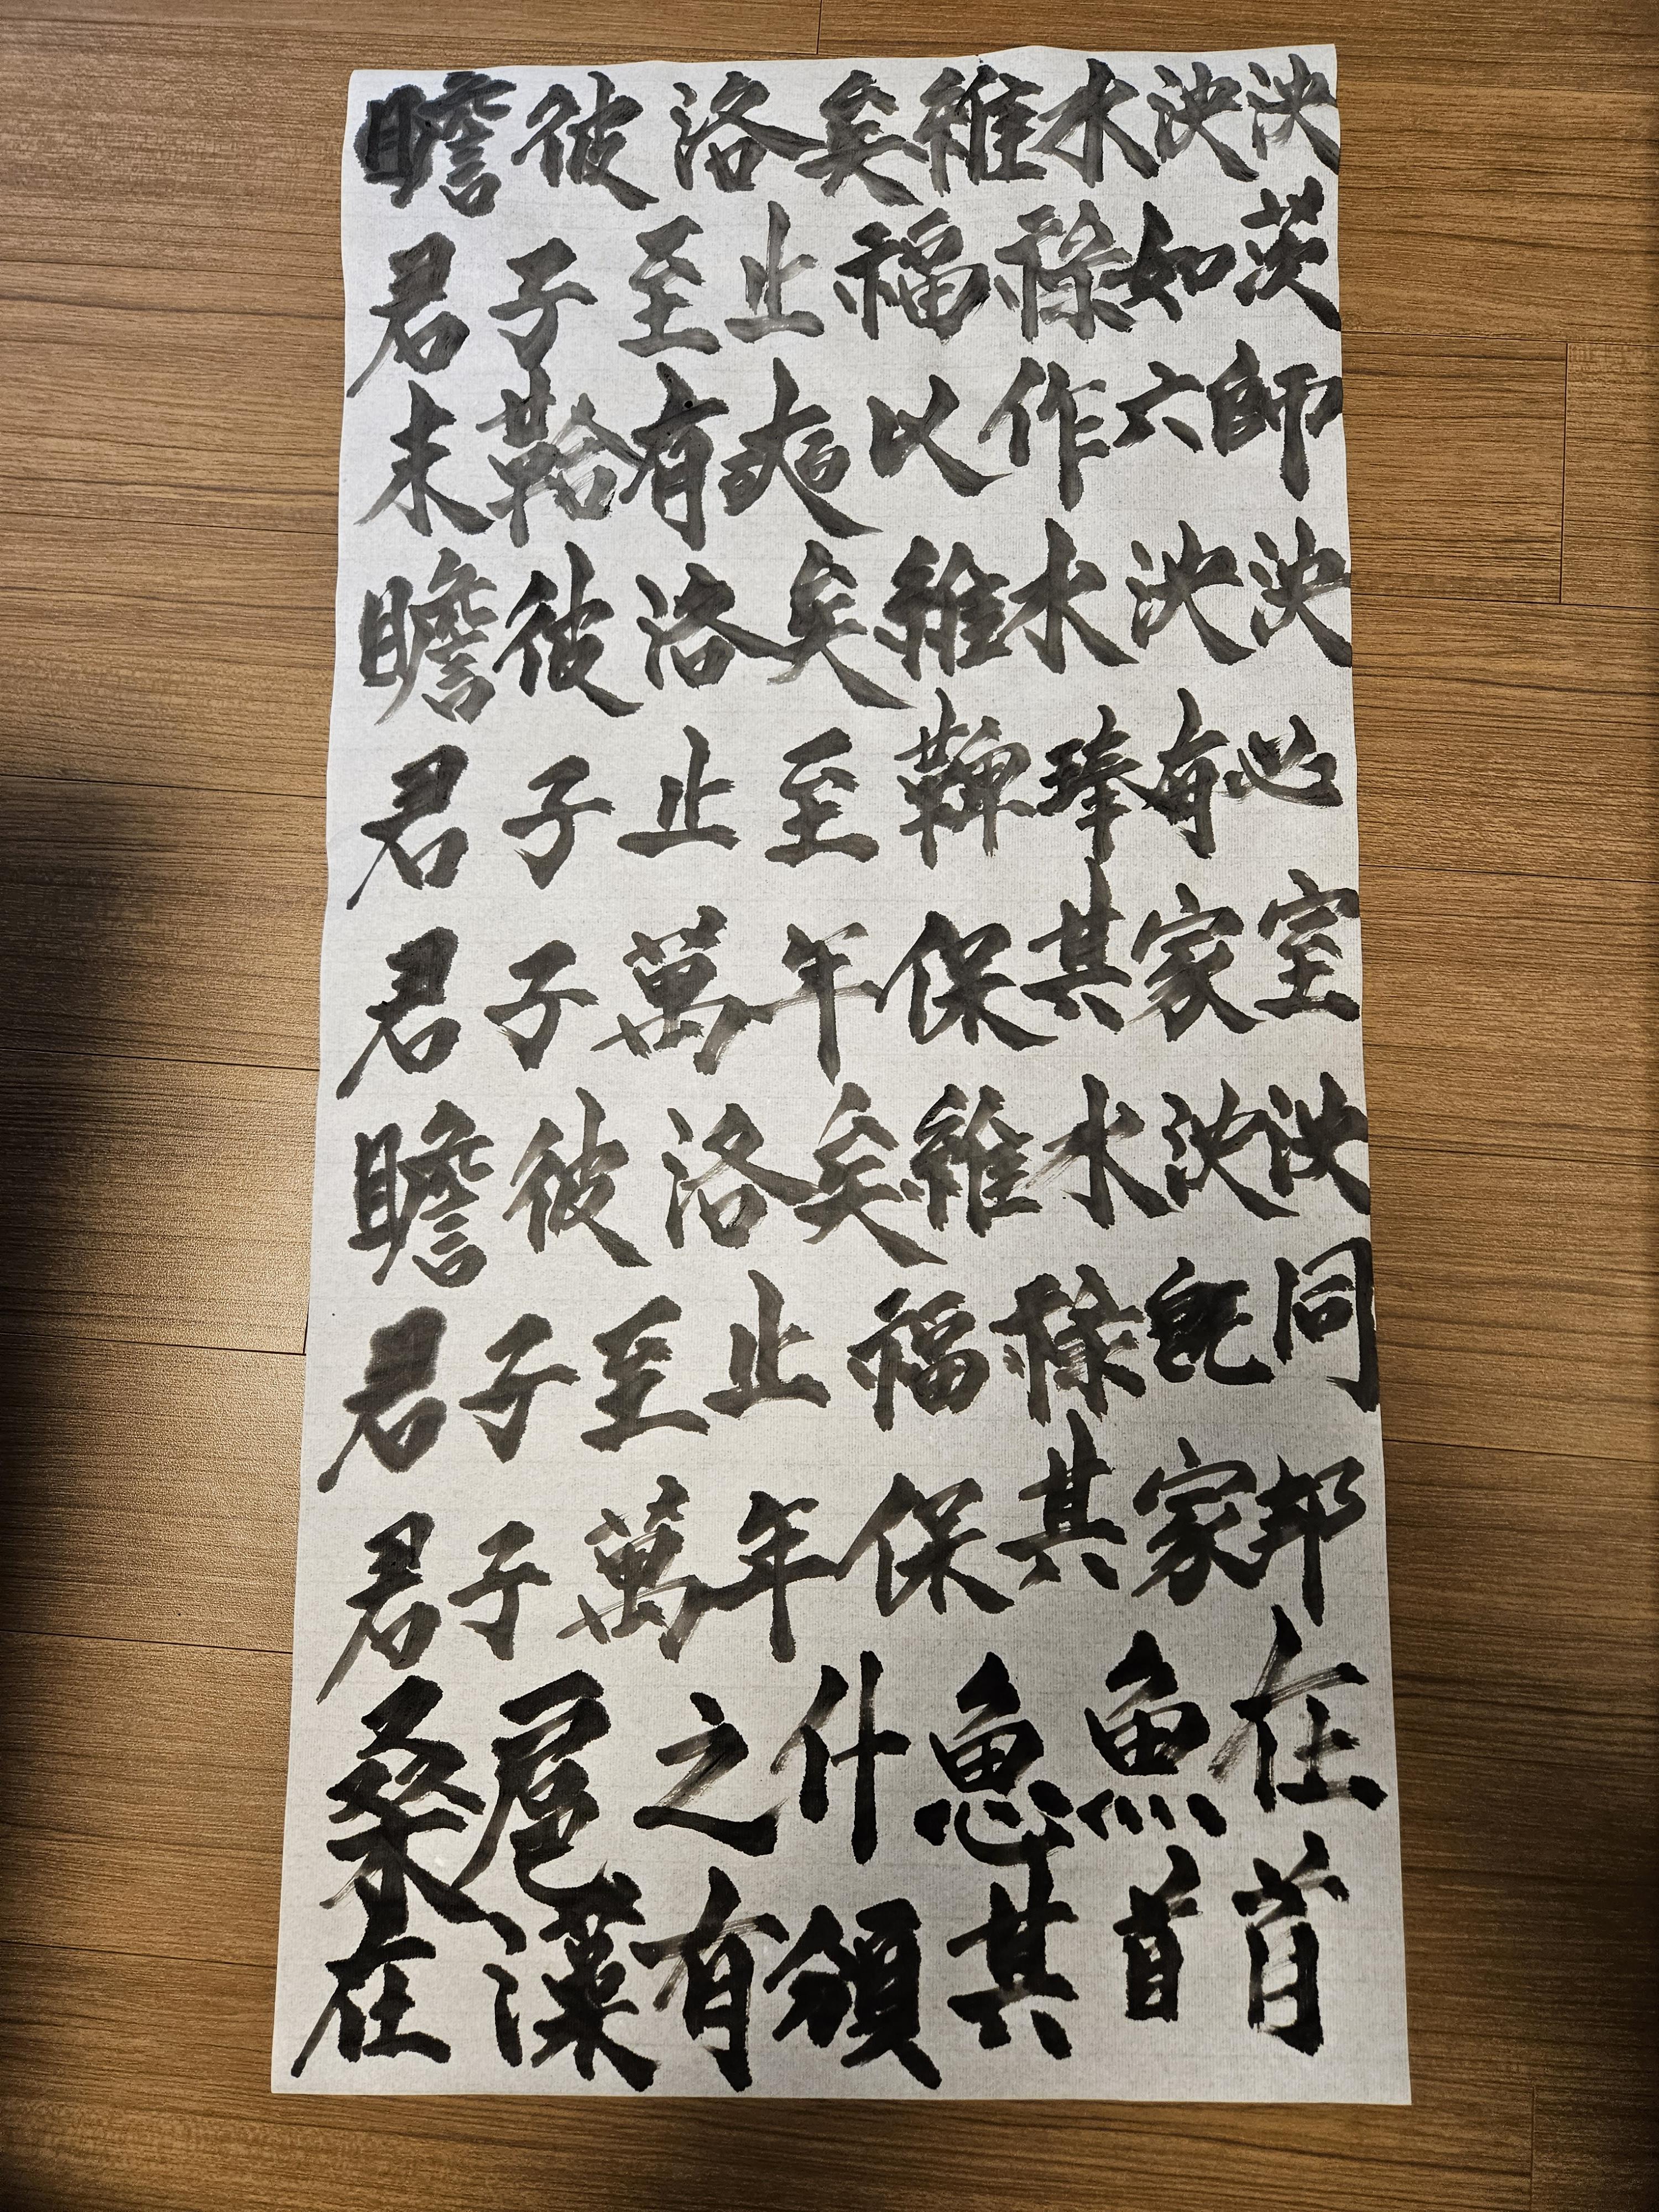 瞻彼洛矣維水泱泱
君子至止福祿如茨
未鞈有奭以作六師
瞻彼洛矣維水泱泱
君子止至鞞琫有
君子萬年保其家室
瞻彼洛矣維水泱泱
君子至止福祿既同
君子萬年保其家邦
桑扈之什魚魚在
在藻有頒其首